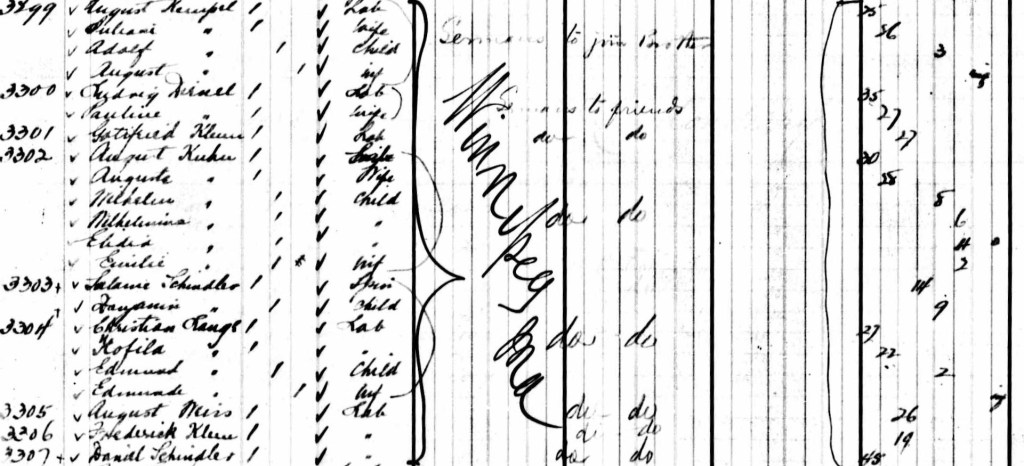 3299 August Hempel 1 Lab 35
" 1 Wife Germans to join Brother 36
Adolf " 1 Child 3
August " 1 inf inf
3300 Ludwig 1 Lab 35
Pauline " 1 Wife Germans to friends 27
3301 Gottfried Klein 1 Lab do do 27
3302 August Kuhn 1 30
Auguste " 1 Wife 28
Wilhelm " 1 Child 8
Wilhelmine " 1 " do do 6
" 1 " 4
Emilie " 1 inf 2
3303 + Salamie Schindler 1 Spin 14
" 1 Child 9
3304 Christian Lange 1 Lab do do 27
" 1 " 22
Edmund " 1 Child 2
" 1 inf inf
3305 August Weiss 1 Lab do do 26
3306 Frederick Klein 1 " do 19
3307 + Daniel Schindler 1 " do do 45
Winnipeg Ma